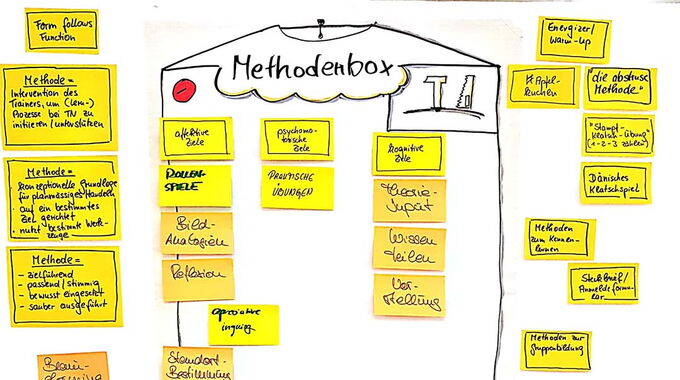 Form follows
Function
Methode =
Intervention des
Trainers, um (Lern-)
Prozesse bei TN zu
initiieren/unterstützen
Methode =
• konzeptionelle Grundlage
für planmässiges Handeln
• auf ein bestimmtes
Ziel gerichtet
• nutzt bestimmte Werk-
zeuge
Methode =
- zielführend
- passend/stimmig
- bewusst eingesetzt
- sauber ausgeführt
Methodenbox
affektive
Ziele
ROLLEN-
SPIELE
Bild-
Analogien
Reflexion
Standort-
Bestimmung
psychomo-
torische
Ziele
PRAKTISCHE
ÜBUNGEN
kognitive
Ziele
Theorie-
Input
Wissen
teilen
Vor-
stellung
Energizer/
Warm-up
"die abstruse
Methode"
"Stampf-
Klatsch-Übung"
(1-2-3 zählen)
Dänisches
Klatschspiel
Methoden
zum Kennen-
lernen
Steckbrief/
Anmeldeformu-
lar
Methoden zur
Gruppenbildung